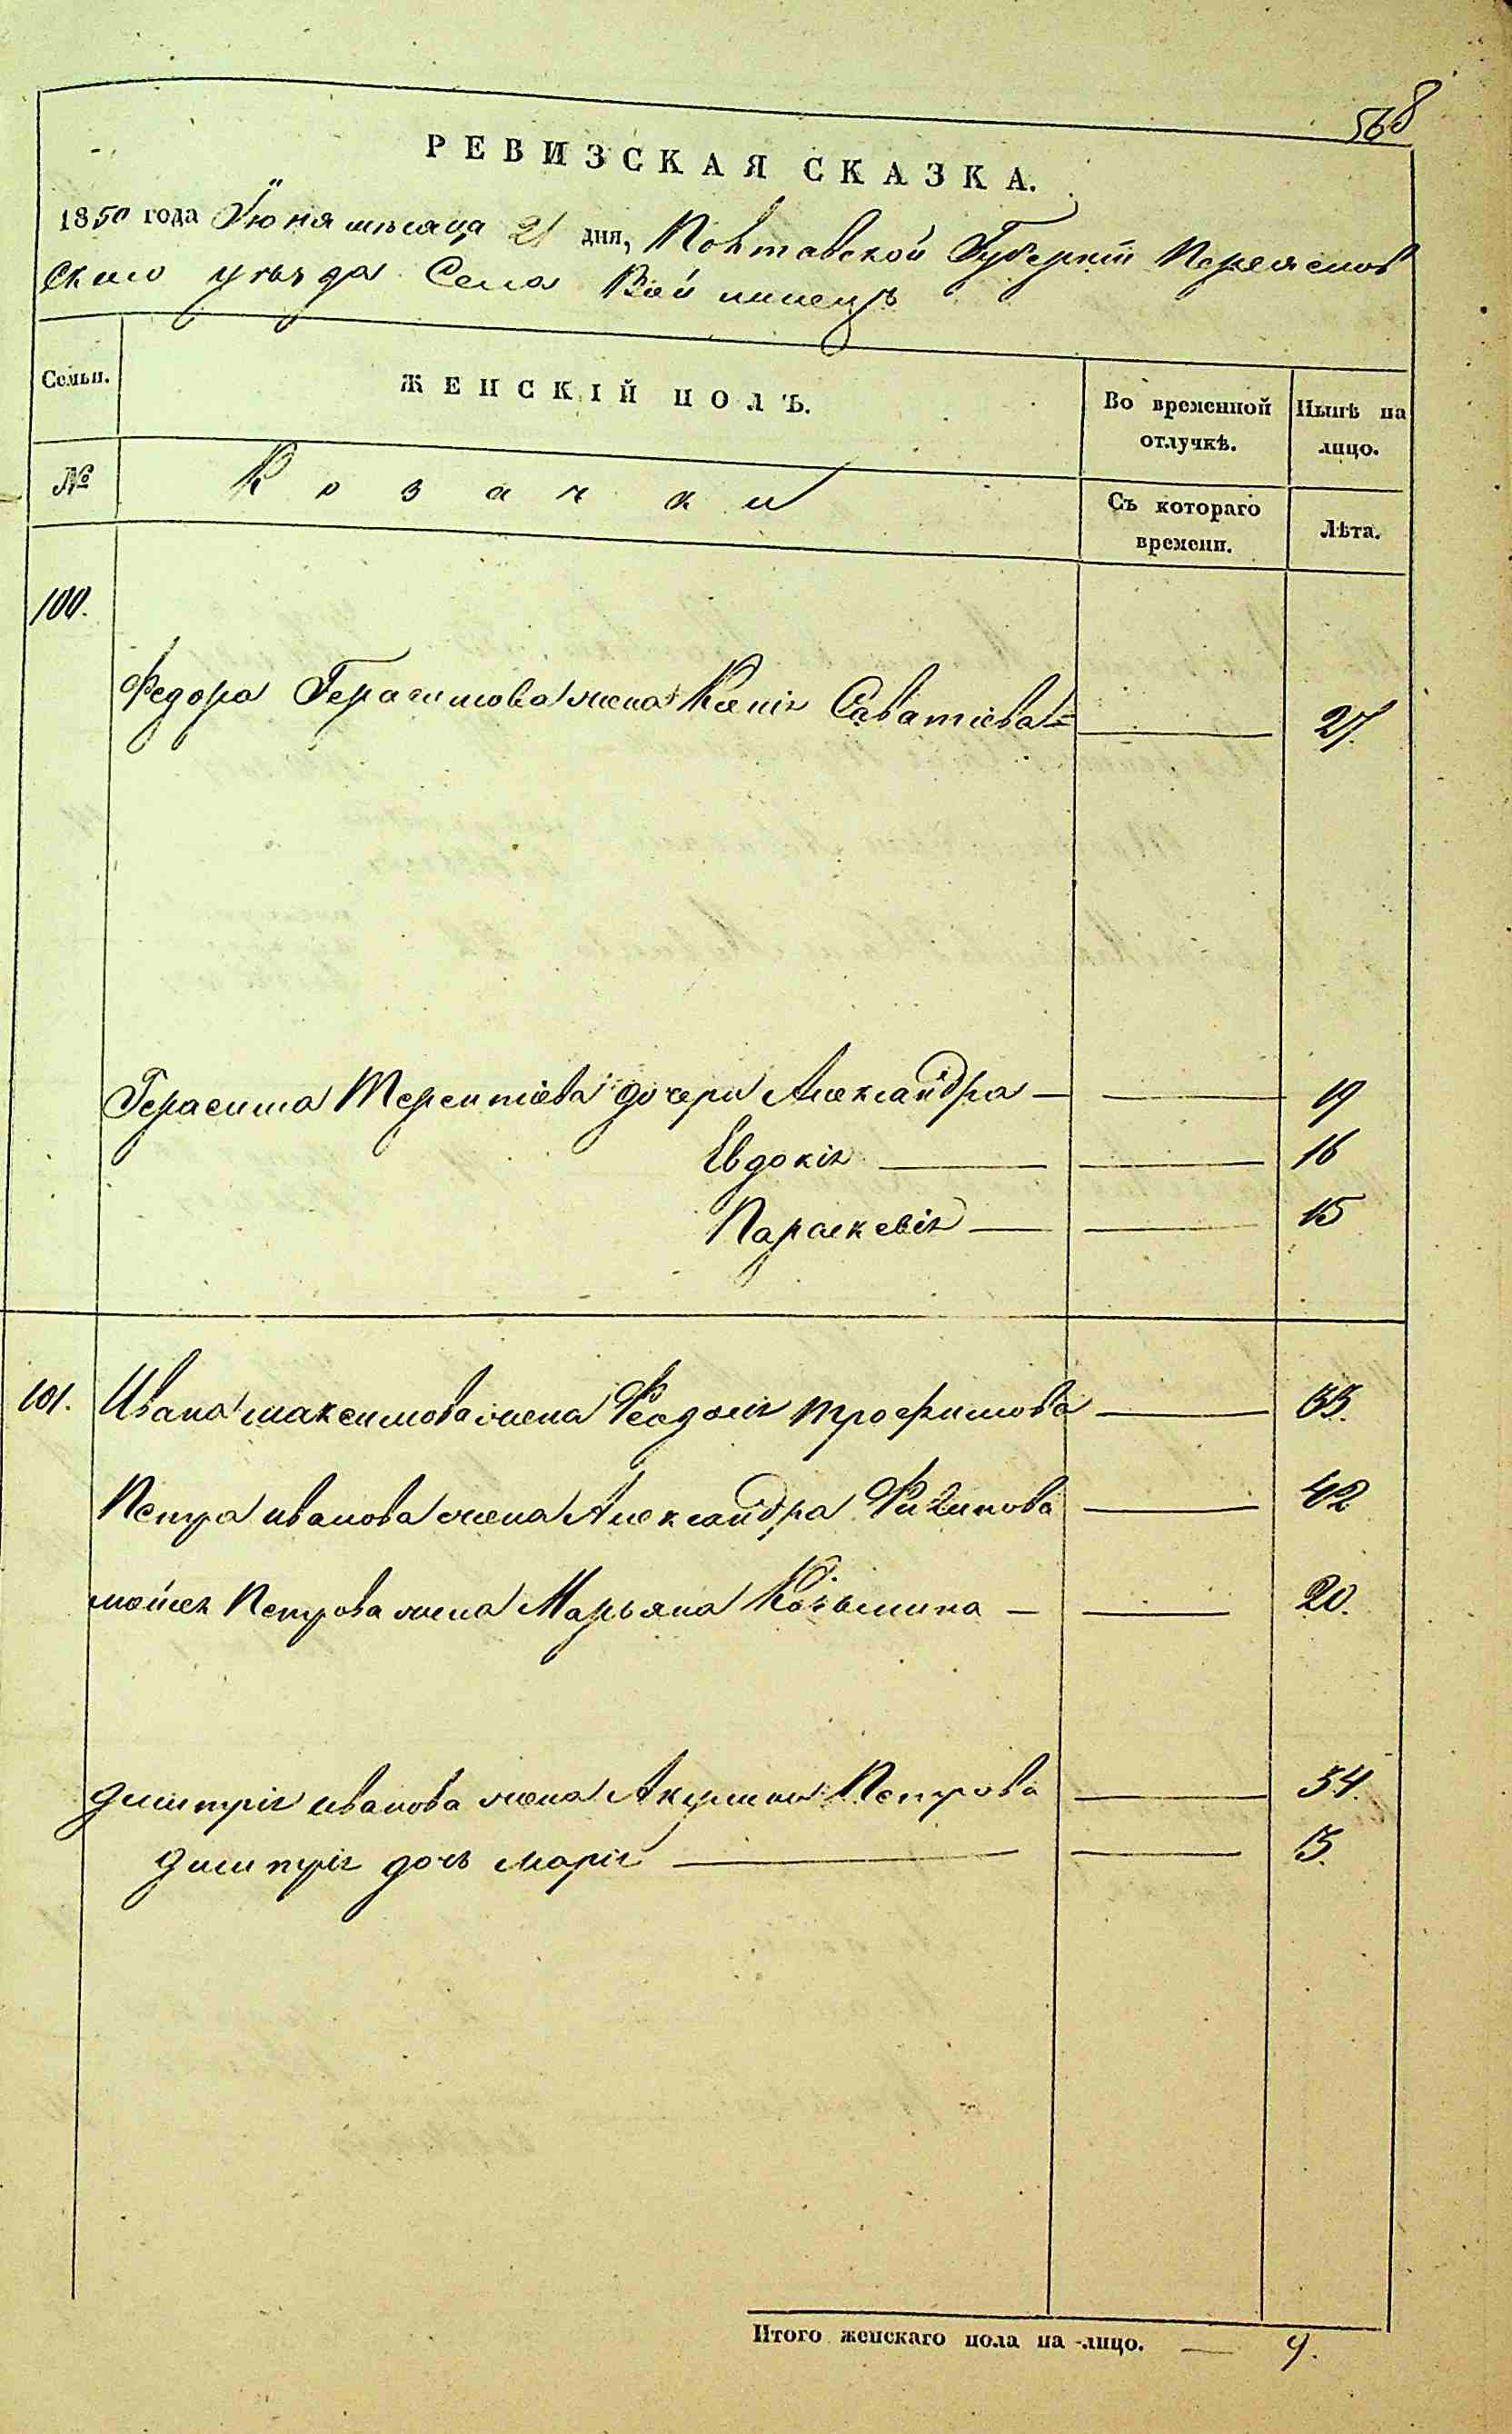 568
РЕВИЗСКАЯ СКАЗКА.
1850 года Іюня мѣсяца 21 дня, Полтавской Губерніи Переяслов
скаго уѣзда Села Войтинецъ
Семьи. ЖЕНСКІЙ ПОЛЪ. Во временной отлучкѣ. Нынѣ на лицо.
№ Козачки Съ котораго времени. Лѣта.
100.
Федора Герасимова жена Ксенія Саватіева 27.
Герасима Терентіева дочери Александра 19
Евдокія 16
Параскевія 15
101. Ивана Максимова жена Феодосія Трофимова
Петра Иванова жена Александра 42
Мойсея Петрова жена Марьяна Козьмина 20.
Димитрія Иванова жена Акулина Петрова 34.
Димитрія дочь Марія
Итого женскаго пола на-лицо. 9.